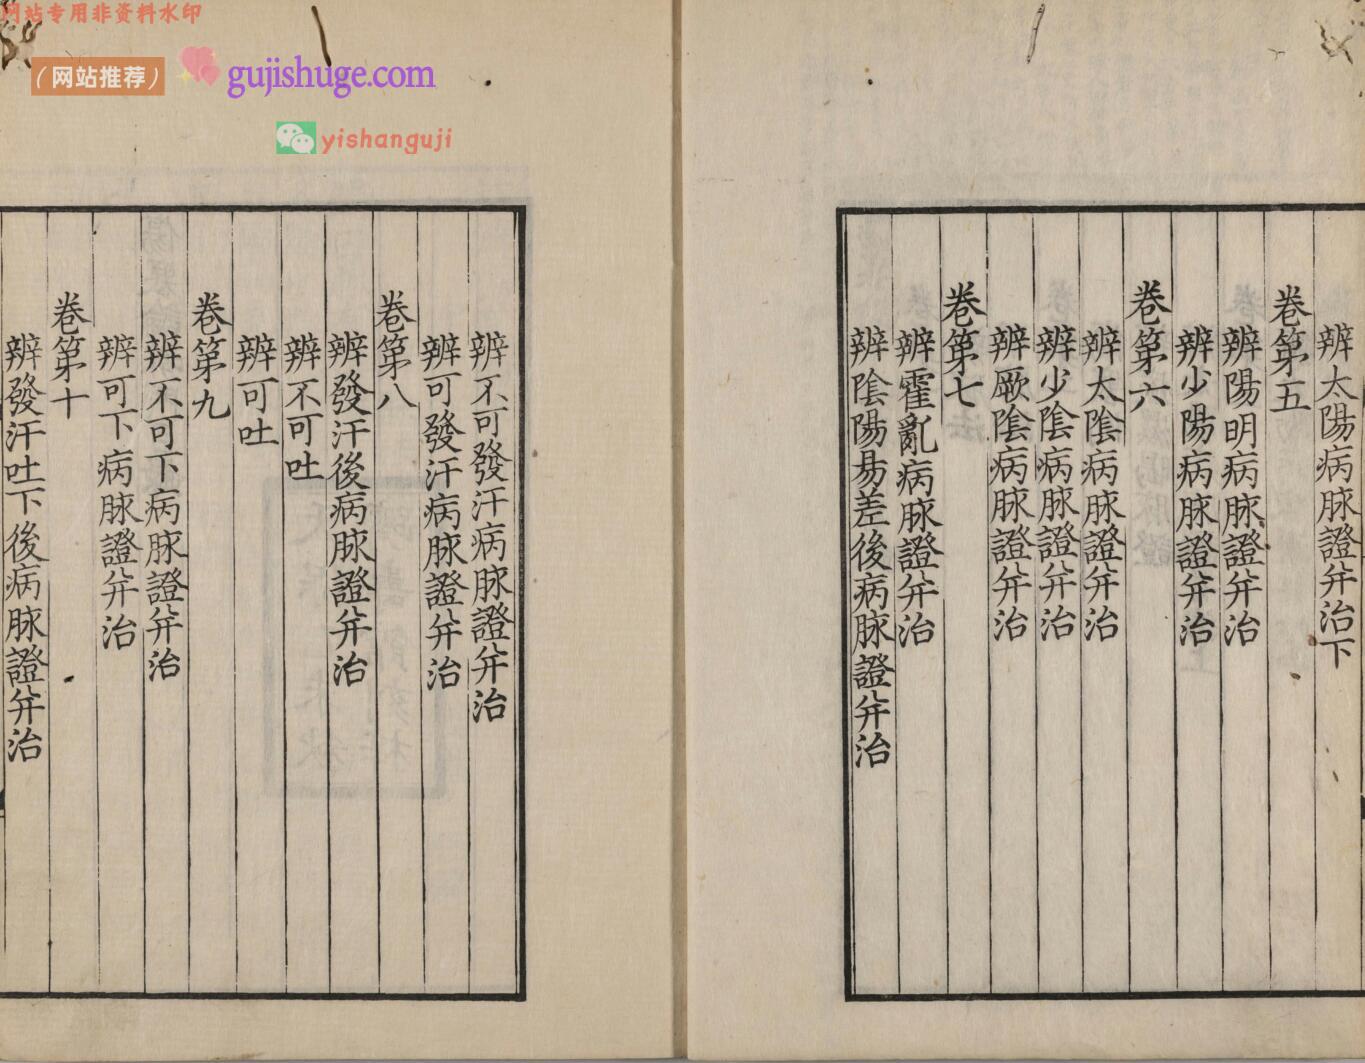 网站专用非资料水印
（网站推荐）
gujishuge.com
yishanguji
辨太陽病脉證并治下
卷第五
辨陽明病脉證并治
辨少陽病脉證并治
卷第六
辨太陰病脉證并治
辨少陰病脉證并治
辨厥陰病脉證并治
卷第七
辨霍亂病脉證并治
辨陰陽易差後病脉證并治
辨不可發汗病脉證并治
辨可發汗病脉證并治
卷第八
辨發汗後病脉證并治
辨不可吐
辨可吐
卷第九
辨不可下病脉證并治
辨可下病脉證并治
卷第十
辨發汗吐下後病脉證并治